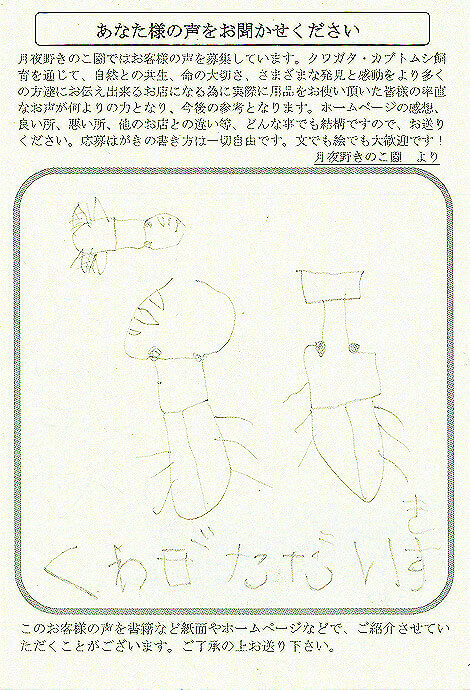 あなた様の声をお聞かせください
月夜野きのこ園ではお客様の声を募集しています。クワガタ・カブトムシ飼
育を通じて、自然との共生、命の大切さ、さまざまな発見と感動をより多く
の方達にお伝え出来るお店になる為に実際に用品をお使い頂いた皆様の率直
なお声が何よりの力となり、今後の参考となります。ホームページの感想、
良い所、悪い所、他のお店との違い等、どんな事でも結構ですので、お送り
ください。応募はがきの書き方は一切自由です。文でも絵でも大歓迎です！
月夜野きのこ園　より
くわがただいすき
このお客様の声を書籍など紙面やホームページなどで、ご紹介させてい
ただくことがございます。ご了承の上お送り下さい。